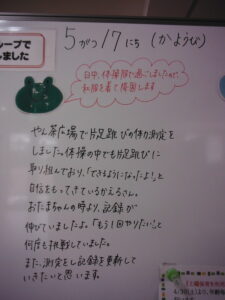 ループで
しました
5がつ17にち (かようび)
日中、体操服で過ごしましたので、
私服を着て降園します
やん茶広場で片足跳びの体力測定を
しました。体操の中でも片足跳びに
取り組んでおり、「できるようになったよ！」と
自信をもってきているかえるさん。
おたまちゃんの時より、記録が
伸びていましたよ。「もう1回やりたい」と
何度も挑戦していました。
また、測定をし記録を更新して
いきたいと思います。